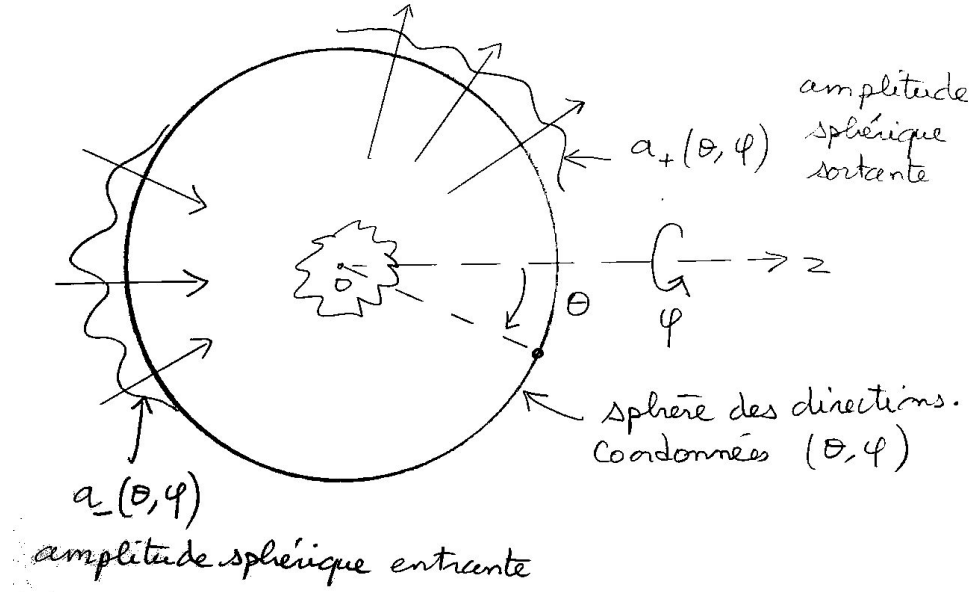 amplitude
sphérique
sortante
a₊(θ,φ)
O
z
θ
φ
sphère des directions.
Coordonnées (θ,φ)
a₋(θ,φ)
amplitude sphérique entrante